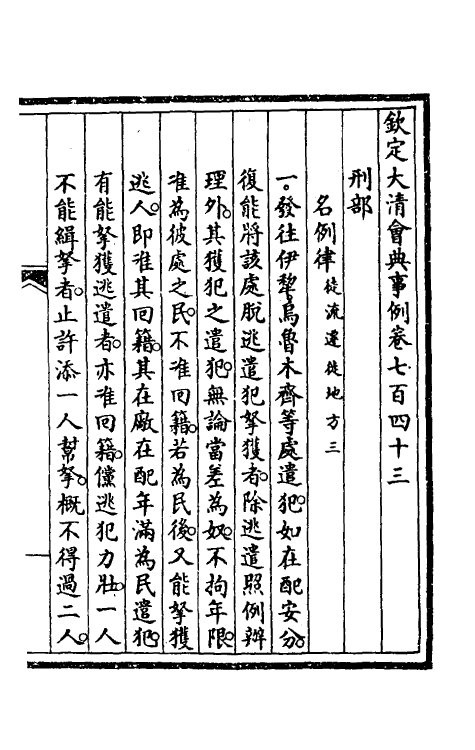 欽定大清會典事例卷七百四十三
刑部
名例律 徒流遷徙地方三
一。發往伊犂烏魯木齊等處遣犯。如在配安分。
復能將該處脫逃遣犯拏獲者。除逃遣照例辦
理外。其獲犯之遣犯。無論當差為奴。不拘年限。
准為彼處之民。不准回籍。若為民後。又能拏獲
逃人。即准其回籍。其在廠在配年滿為民遣犯。
有能拏獲逃遣者。亦准回籍。儻逃犯力壯。一人
不能緝拏者。止許添一人幫拏。概不得過二人。